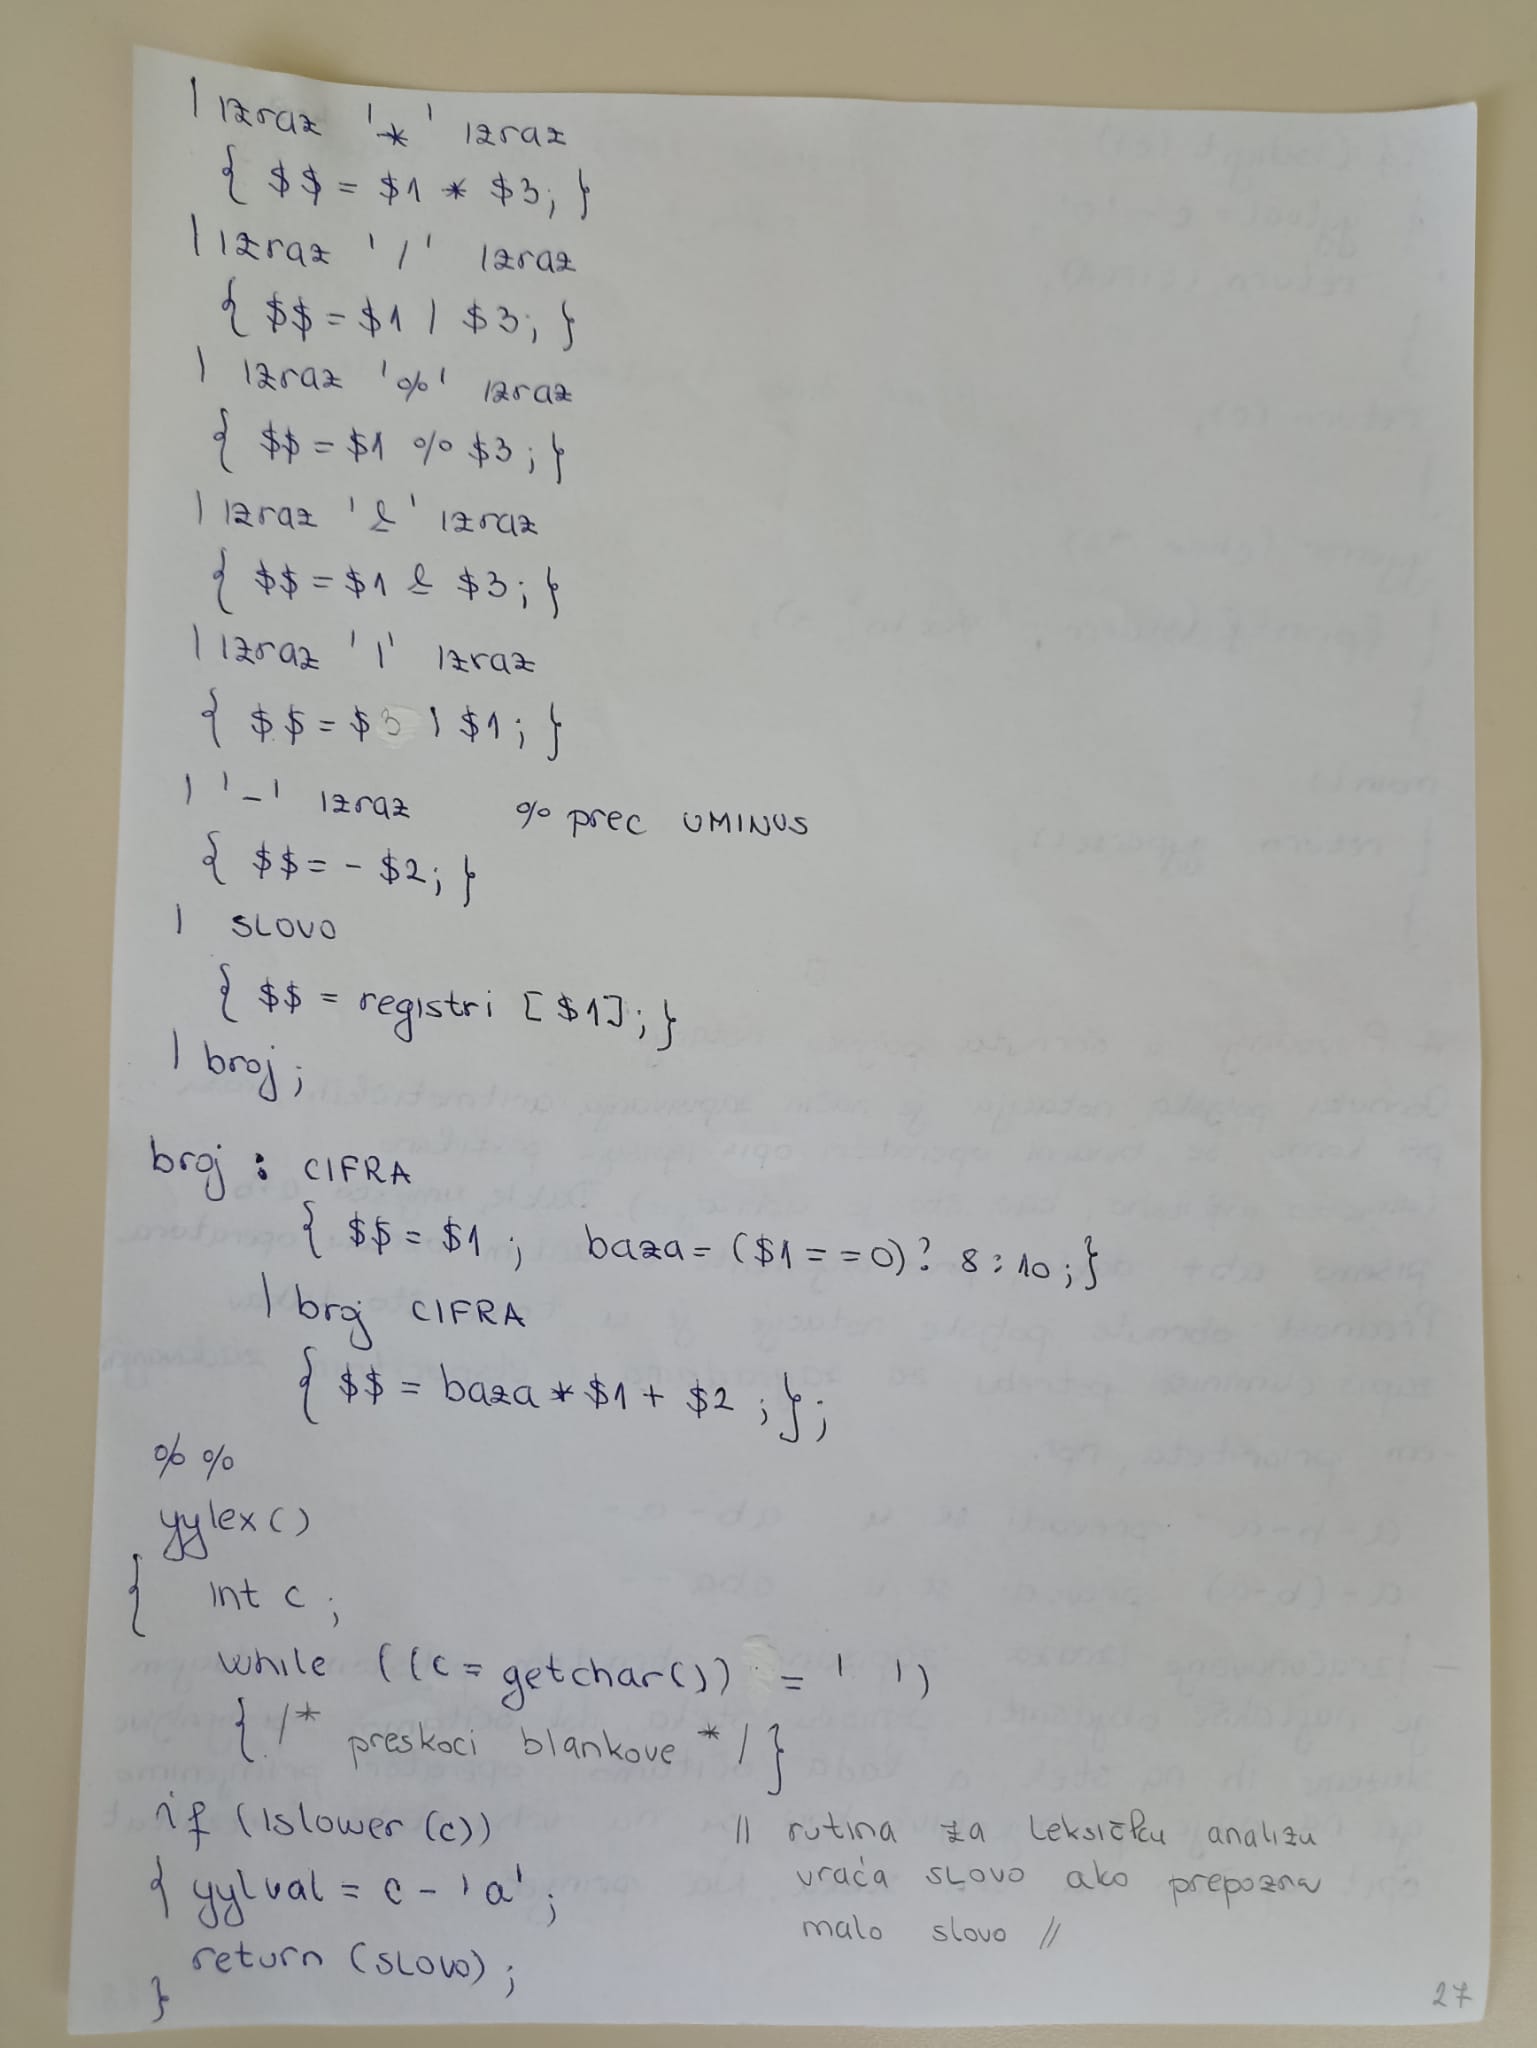 | izraz '*' izraz
{ $$ = $1 * $3; }
| izraz '/' izraz
{ $$ = $1 / $3; }
| izraz '%' izraz
{ $$ = $1 % $3; }
| izraz '&' izraz
{ $$ = $1 & $3; }
| izraz '|' izraz
{ $$ = $3 | $1; }
| '-' izraz % prec UMINUS
{ $$ = - $2; }
| SLOVO
{ $$ = registri [$1]; }
| broj;
broj : CIFRA
{ $$ = $1; baza = ($1 == 0)? 8 : 10; }
| broj CIFRA
{ $$ = baza * $1 + $2; };
%%
yylex()
{ int c;
while ((c = getchar()) = ' ')
{ /* preskoci blankove */ }
if (islower (c)) // rutina za leksičku analizu
{ yylval = c - 'a'; vraća SLOVO ako prepozna
malo slovo //
return (SLOVO);
}
27